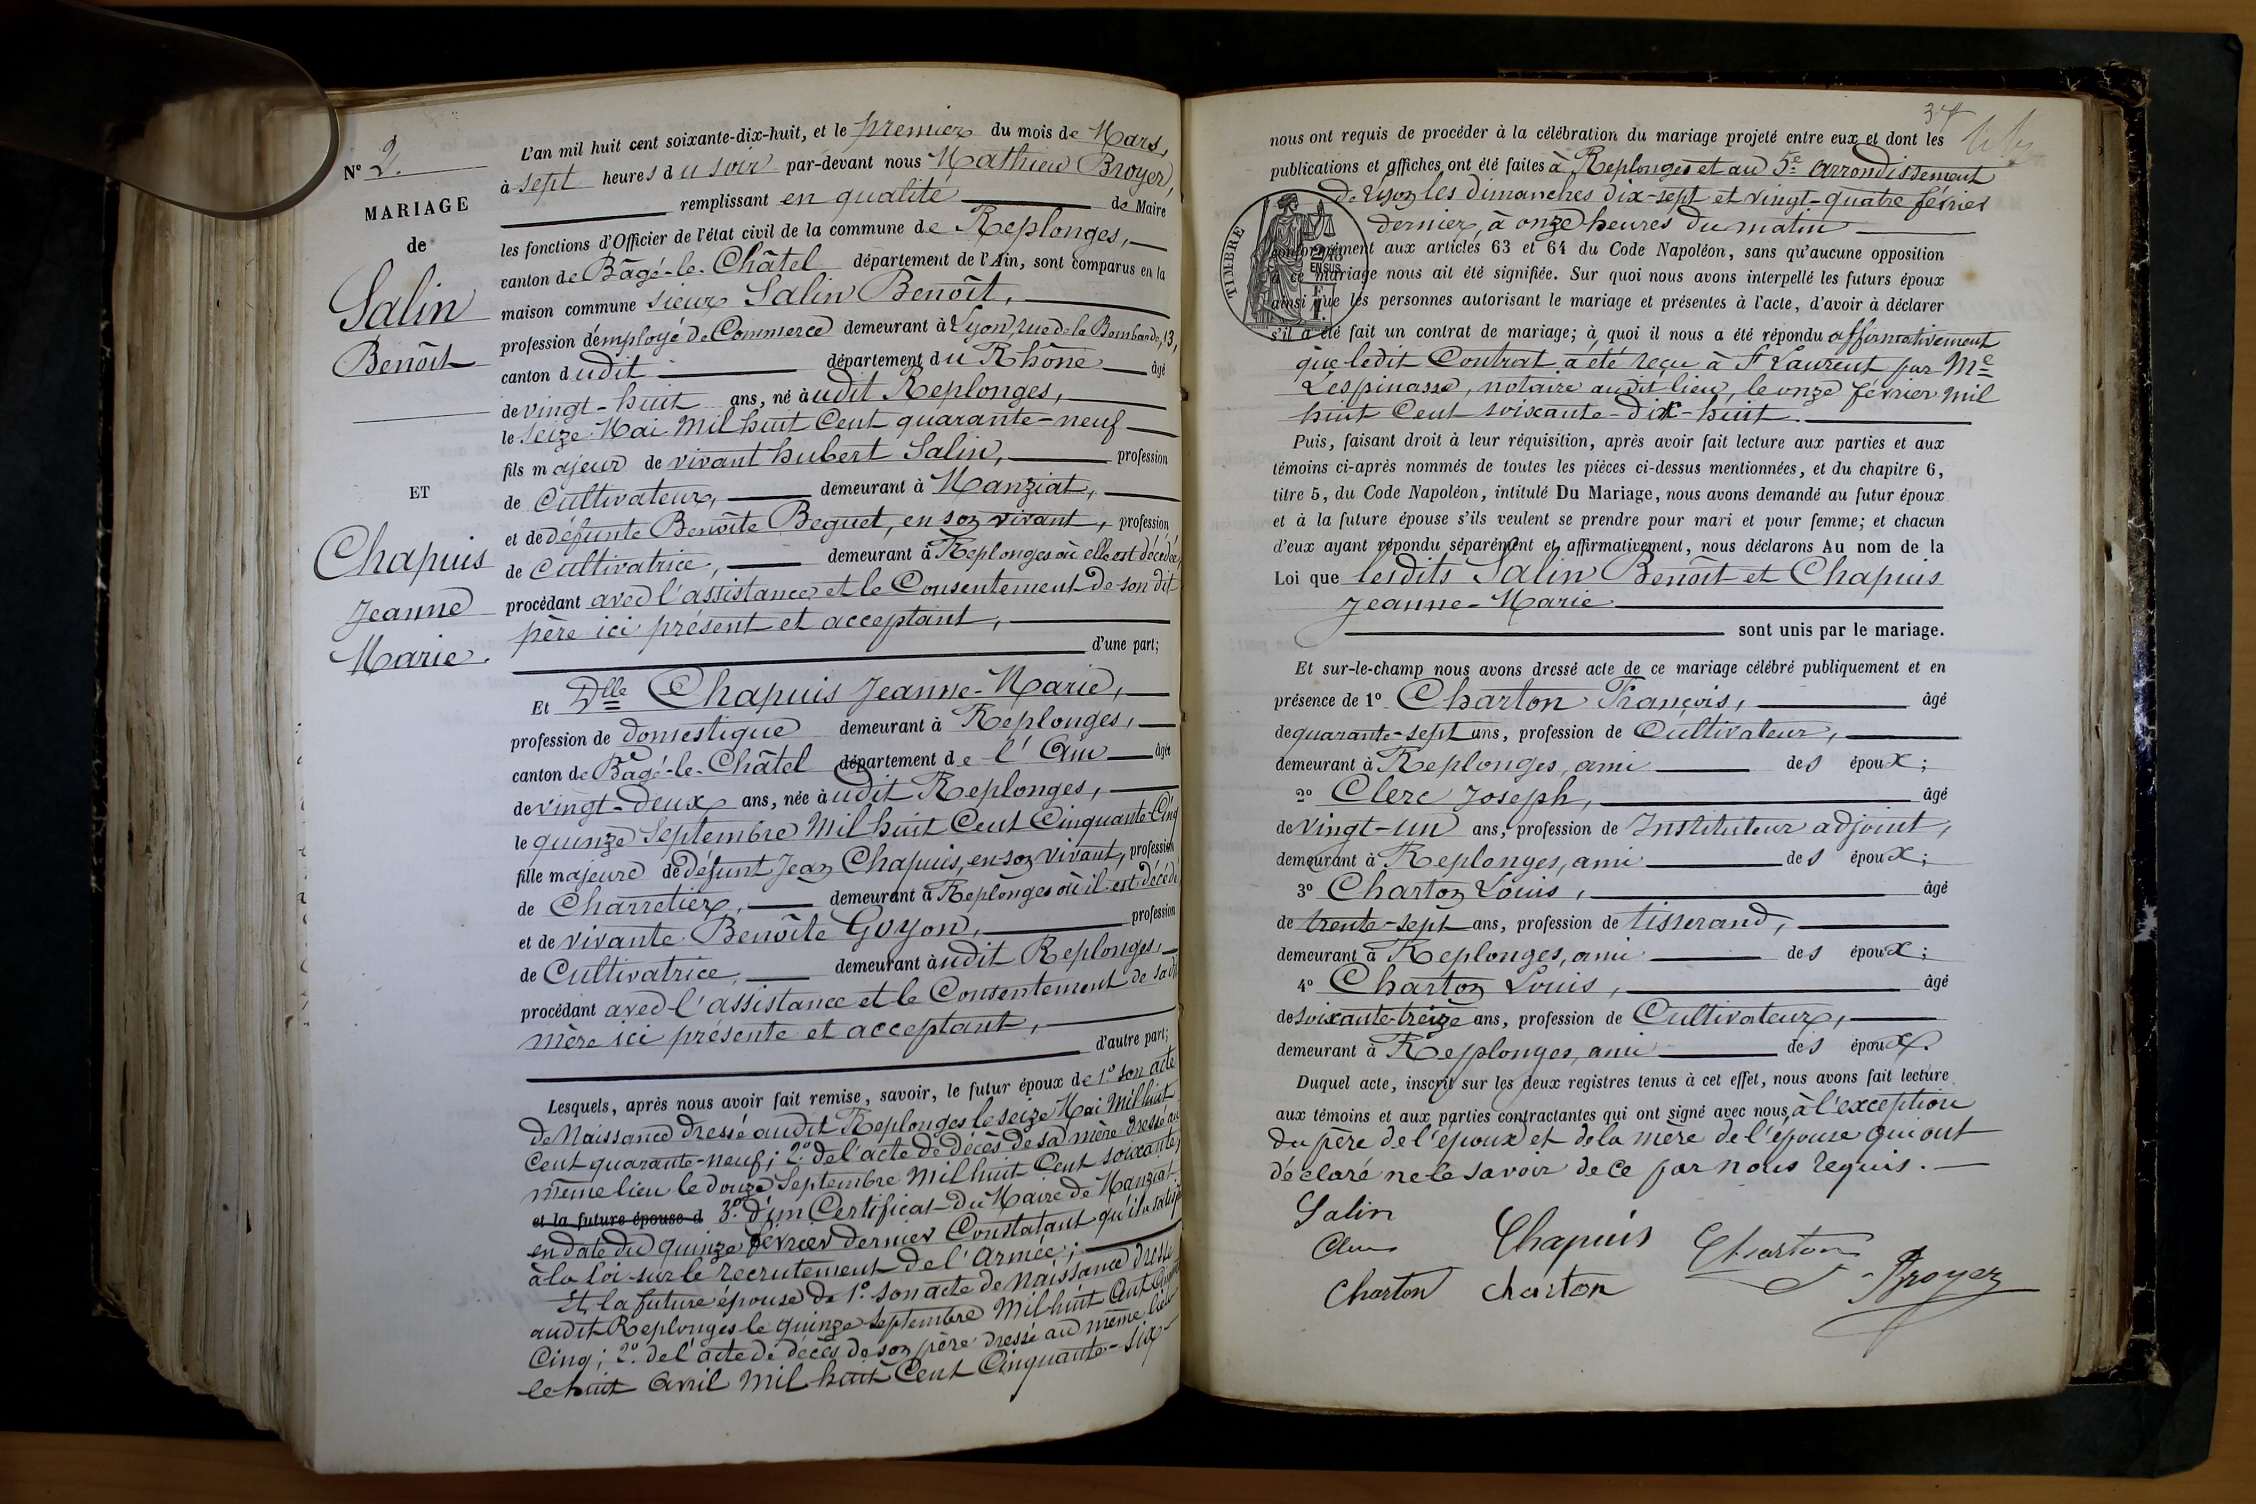 N° 2.
MARIAGE
de
Salin
Benoît
ET
Chapuis
Jeanne
Marie.
L'an mil huit cent soixante-dix-huit, et le premier du mois de Mars,
à sept heures du soir par-devant nous Mathieu Broyer,
remplissant en qualité de Maire
les fonctions d'Officier de l'état civil de la commune de Replonges,
canton de Bâgé-le-Châtel département de l'Ain, sont comparus en la
maison commune sieur Salin Benoît,
profession d'employé de Commerce demeurant à Lyon, rue de la Bombarde, 13,
canton dudit département du Rhône âgé
de vingt-huit ans, né àudit Replonges,
le seize Mai Mil huit Cent quarante-neuf
fils majeur de vivant hubert Salin, profession
de Cultivateur, demeurant à Manziat,
et de défunte Benoîte Beguet, en son vivant, profession
de Cultivatrice, demeurant à Replonges où elle est décédée,
procédant avec l'assistance et le Consentement de son dit
père ici présent et acceptant,
d'une part;
Et Dlle Chapuis Jeanne-Marie,
profession de domestique demeurant à Replonges,
canton de Bâgé-le-Châtel département de l'Ain âgée
de vingt-deux ans, née àudit Replonges,
le quinze Septembre Mil huit Cent Cinquante-Cinq
fille majeure de défunt Jean Chapuis, en son vivant, profession
de Charretier, demeurant à Replonges où il est décédé
et de vivante Benoîte Goyon, profession
de Cultivatrice, demeurant àudit Replonges,
procédant avec l'assistance et le Consentement de sa dit
mère ici présente et acceptant,
d'autre part;
Lesquels, après nous avoir fait remise, savoir, le futur époux de 1° son acte
de Naissance dressé audit Replonges le seize Mai Mil huit
Cent quarante-neuf; 2° de l'acte de décès de sa mère dressé au
même lieu le douze Septembre Mil huit Cent soixante,
et la future épouse d 3° d'un Certificat du Maire de Manziat
en date du quinze février dernier Constatant qu'il a satisfait
à la loi sur le recrutement de l'Armée;
Et la future épouse de 1° son acte de Naissance dressé
audit Replonges le quinze Septembre Mil huit Cent Cinquante
Cinq; 2° de l'acte de décès de son père dressé au même lieu
le huit Avril Mil huit Cent Cinquante-Six
37
nous ont requis de procéder à la célébration du mariage projeté entre eux et dont les
publications et affiches ont été faites à Replonges et au 5e arrondissement
de Lyon les dimanches dix-sept et vingt-quatre février
dernier, à onze heures du matin
conformément aux articles 63 et 64 du Code Napoléon, sans qu'aucune opposition
à ce mariage nous ait été signifiée. Sur quoi nous avons interpellé les futurs époux
ainsi que les personnes autorisant le mariage et présentes à l'acte, d'avoir à déclarer
s'il a été fait un contrat de mariage; à quoi il nous a été répondu affirmativement
que ledit Contrat a été reçu à St Laurent par Me
Lespinasse, notaire audit lieu, le onze février mil
huit Cent soixante-dix-huit.
TIMBRE
EN SUS
Puis, faisant droit à leur réquisition, après avoir fait lecture aux parties et aux
témoins ci-après nommés de toutes les pièces ci-dessus mentionnées, et du chapitre 6,
titre 5, du Code Napoléon, intitulé Du Mariage, nous avons demandé au futur époux
et à la future épouse s'ils veulent se prendre pour mari et pour femme; et chacun
d'eux ayant répondu séparément et affirmativement, nous déclarons Au nom de la
Loi que lesdits Salin Benoît et Chapuis
Jeanne-Marie
sont unis par le mariage.
Et sur-le-champ nous avons dressé acte de ce mariage célébré publiquement et en
présence de 1° Charton François, âgé
de quarante-sept ans, profession de Cultivateur,
demeurant à Replonges, ami des époux;
2° Clerc Joseph, âgé
de vingt-un ans, profession de Instituteur adjoint,
demeurant à Replonges, ami des époux;
3° Charton Louis, âgé
de trente-sept ans, profession de tisserand,
demeurant à Replonges, ami des époux;
4° Charton Louis, âgé
de soixante-treize ans, profession de Cultivateur,
demeurant à Replonges, ami des époux.
Duquel acte, inscrit sur les deux registres tenus à cet effet, nous avons fait lecture
aux témoins et aux parties contractantes qui ont signé avec nous, à l'exception
du père de l'époux et de la mère de l'épouse qui ont
déclaré ne le savoir de ce par nous requis.
Salin
Chapuis Charton Broyer
Charton charton